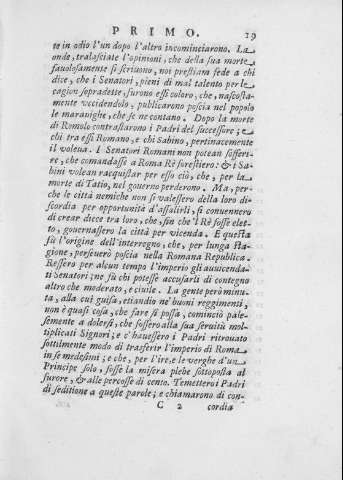 PRIMO. 19
te in odio l'un dopo l'altro incominciarono. La
onde, tralasciate l'opinioni, che della sua morte
fauolosamente si scriuono, noi prestiam fede a chi
dice, che i Senatori, pieni di mal talento per le
cagion sopradette, furono essi coloro, che, nascosta-
mente vccidendolo, publicarono poscia nel popolo
le marauighe, che se ne contano. Dopo la morte
di Romolo contrastarono i Padri del successore; e
chi tra essi Romano, e chi Sabino, pertinacemente
il voleua. I Senatori Romani non potean soffert-
re, che comandasse a Roma Rè forestiero: & i Sa-
bini volean racquistar per esso ciò, che, per la
morte di Tatio, nel gouerno perderono. Ma, per-
che le città nemiche non si valessero della loro di-
scordia per opportunità d'assalirli, si conuennero
di crear diece tra loro, che, sin che 'l Rè fosse elet-
to, gouernassero la città per vicenda. E questa
fù l'origine dell'interregno, che, per lunga sta-
gione, perseuerò poscia nella Romana Republica.
Ressero per alcun tempo l'imperio gli auuicenda-
ti Senatori; ne fù chi potesse accusarli di contegno
altro che moderato, e ciuile. La gente però minu-
ta, alla cui guisa, etiandio ne' buoni reggimenti,
non è quasi cosa, che fare si possa, cominciò pale-
semente a dolersi, che fossero alla sua seruitù mol-
tiplicati Signori; e c'hauessero i Padri ritrouato
sottilmente modo di trasferir l'imperio di Roma
in se medesimi; e che, per l'ire, e le verghe d'un
Principe solo, fosse la misera plebe sottoposta al
furore, & alle percosse di cento. Temettero i Padri
di seditione a queste parole; e chiamarono di con-
C 2 cordia